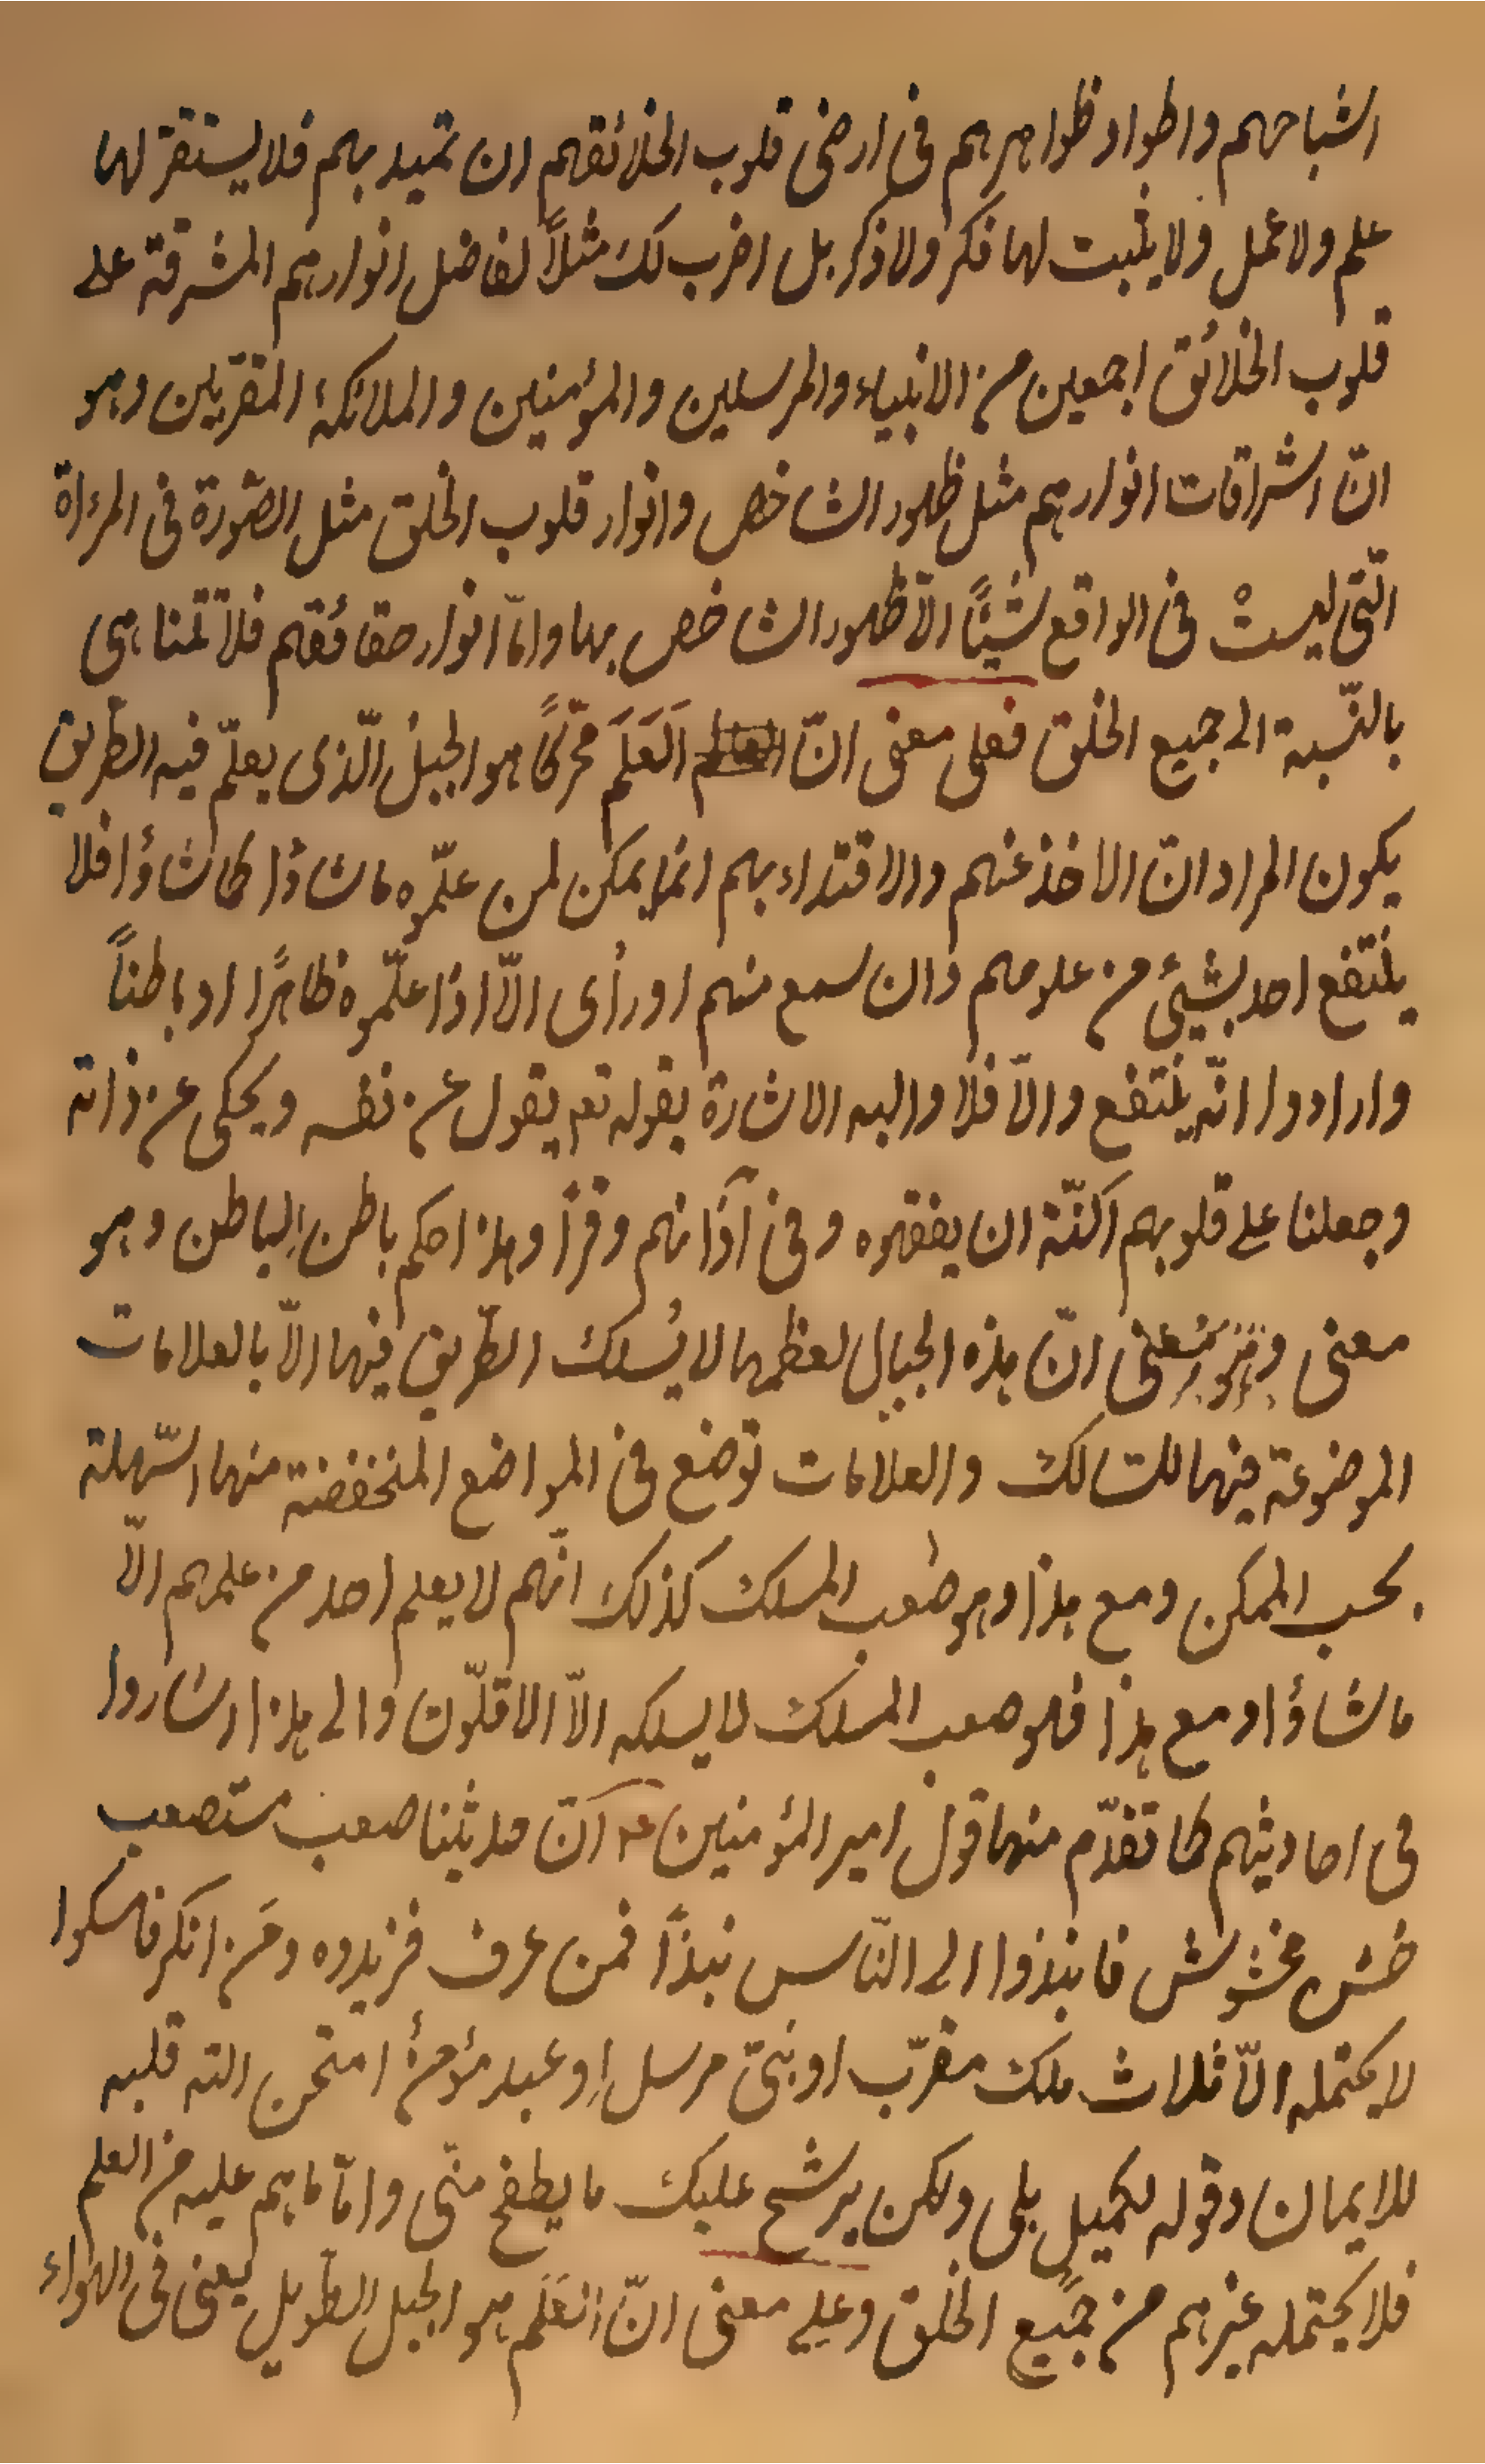 اشباحهم واطواد ظواهرهم فى ارضى قلوب الخلائقهم ان تميد بهم فلا يستقرّ لها
علم ولا عمل ولا يثبت لها فكر ولا ذكر بل اضرب لك مثلاً لفاضل انوارهم المشرقة على
قلوب الخلائق اجمعين من الانبياء والمرسلين والمؤمنين والملائكة المقرّبين وهو
انّ اشراقات انوارهم مثل ظهور الشاخص وانوار قلوب الخلق مثل الصّورة فى المرءاة
الّتى ليستْ فى الواقع شيئًا الّا ظهور الشاخص بها وامّا انوار حقائقهم فلا تتناهى
بالنّسبة الى جميع الخلق فعلى معنى انّ اَلعَلَمَ محرّكًا هو الجبل الّذى يعلّم فيه الطّريق
يكون المراد انّ الاخذ عنهم والاقتداء بهم انّما يمكن لمن علّموه ما شاؤا كما شاؤا فلا
ينتفع احد بشيئ من علومهم وان سمع منهم او رأى الّا اذا علّموه ظاهرًا او باطناً
وارادوا انّه ينتفع والّا فلا واليه الاشارة بقوله تع يقول عن نفسه ويحكى عن ذاته
وجعلنا على قلوبهم اكنّة ان يفقهوه وفى آذانهم وقرًا وهذا حكم باطن الباطن وهو
معنى وهو معنى انّ هذه الجبال لعظمها لا يُسلك الطّريق فيها الّا بالعلامات
الموضوعة فيها للسالك والعلامات توضع فى المواضع المنخفضة منها السّهلة
بحسب الممكن ومع هذا وهو صعب المسلك كذلك انّهم لا يعلم احد من علمهم الّا
ما شاؤا ومع هذا فهو صعب المسلك لا يسلكه الّا الاقلّون والى هذا اشاروا
فى احاديثهم كما تقدّم منها قول امير المؤمنين عه انّ حديثنا صعب مستصعب
خشن مخشوش فانبذوا الى النّاس نبذًا فمن عرف فزيدوه ومَن انكر فامسكوا
لا يحتمله الّا ثلاث ملك مقرّب او نبىّ مرسل او عبد مؤمن امتحن الله قلبه
للايمان وقوله لكميل بلى ولكن يرشح عليك ما يطفح منّى وامّا ما هم عليه من العلم
فلا يحتمله غيرهم من جميع الخلق وعلى معنى انّ العَلَم هو الجبل الطّويل يعنى فى الهواء